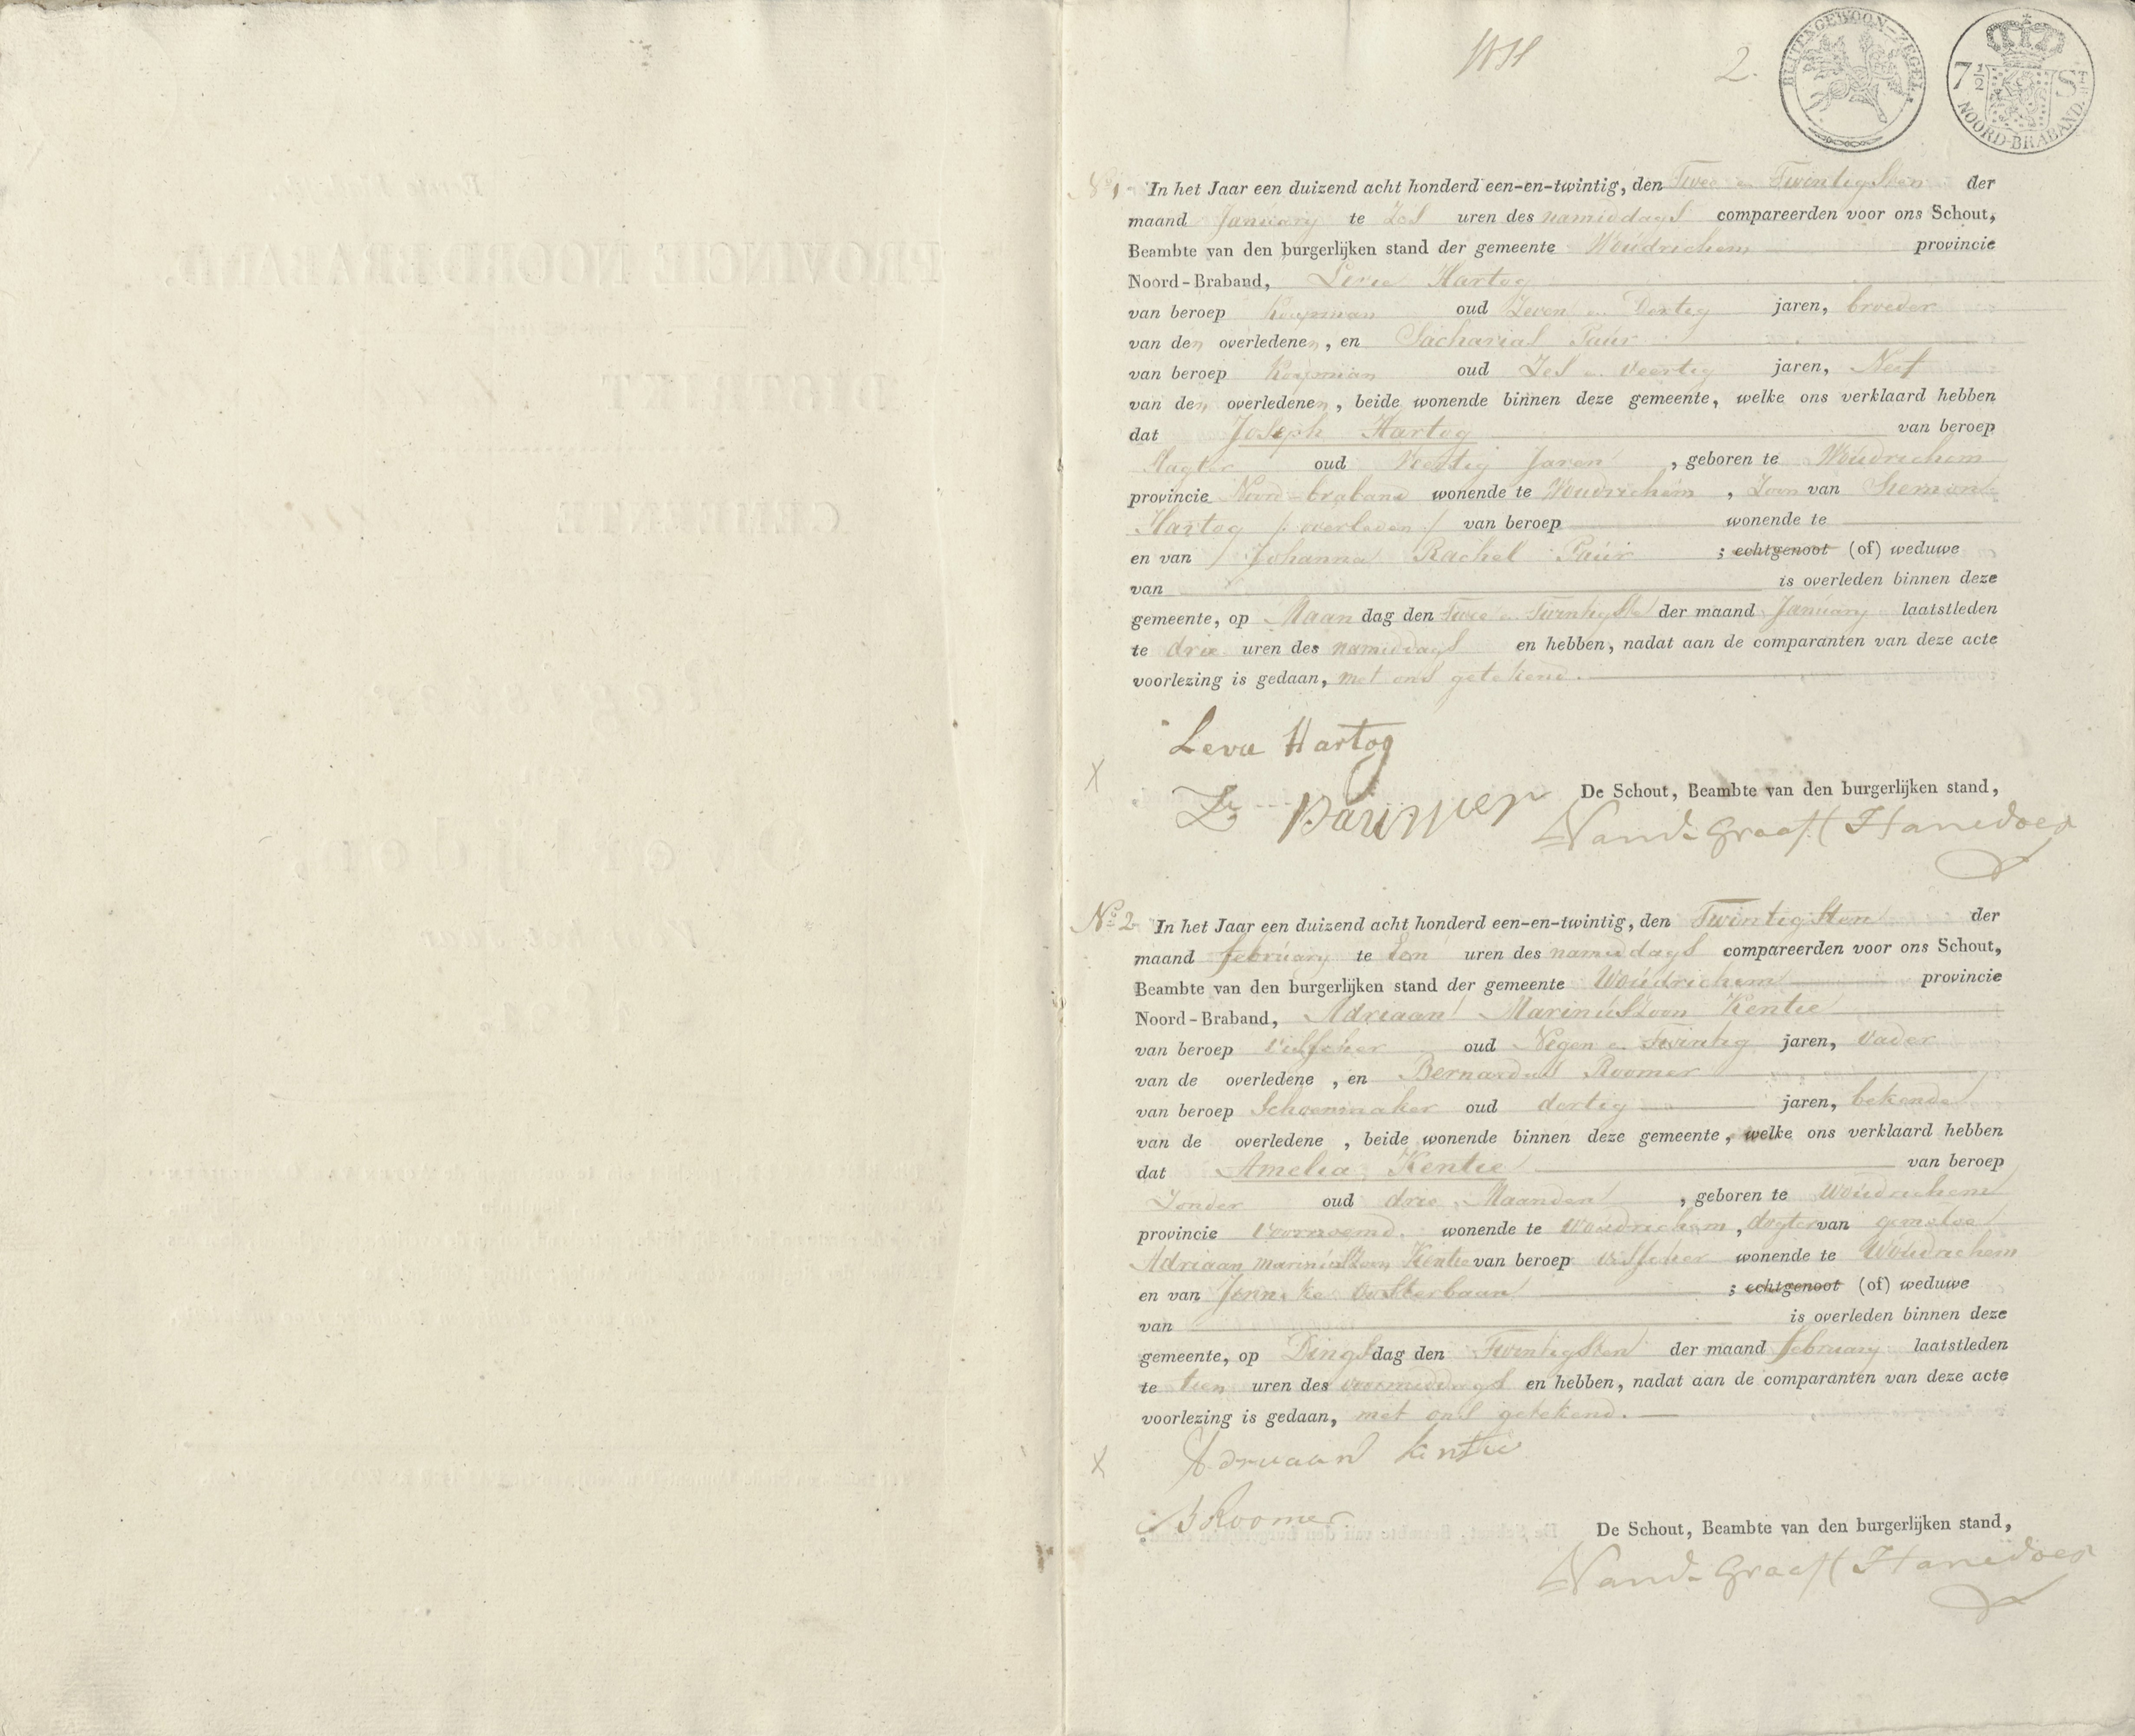 WH
2.
BUITENGEWOON-ZEGEL.
7 1/2 St
NOORD-BRABAND.
No 1 In het Jaar een duizend acht honderd een-en-twintig, den Twee en Twintigsten der
maand January te Zes uren des namiddags compareerden voor ons Schout,
Beambte van den burgerlijken stand der gemeente Woudrichem provincie
Noord-Braband, Levie Hartog
van beroep Koopman oud Zeven en Dertig jaren, broeder
van den overledenen, en Sacharias Paur
van beroep Koopman oud Zes en Veertig jaren, Neef
van den overledenen, beide wonende binnen deze gemeente, welke ons verklaard hebben
dat Joseph Hartog van beroep
Slagter oud Veertig Jaren, geboren te Woudrichem
provincie Noord-braband wonende te Woudrichem, Zoon van
Hartog /:overleden:/ van beroep wonende te
en van Johanna Rachel Paur ; echtgenoot (of) weduwe
van is overleden binnen deze
gemeente, op Maandag den Twee en Twintigste der maand January laatstleden
te drie uren des namiddags en hebben, nadat aan de comparanten van deze acte
voorlezing is gedaan, met ons getekend.
Leva Hartog
Z
De Schout, Beambte van den burgerlijken stand,
Vand Graaff Hanedoes
No 2 In het Jaar een duizend acht honderd een-en-twintig, den Twintigsten der
maand february te Een uren des namiddags compareerden voor ons Schout,
Beambte van den burgerlijken stand der gemeente Woudrichem provincie
Noord-Braband, Adriaan Marinuszoon Kentie
van beroep Visscher oud Negen en Twintig jaren, Vader
van de overledene, en Bernardus Roomer
van beroep Schoenmaker oud dertig jaren, bekende
van de overledene, beide wonende binnen deze gemeente, welke ons verklaard hebben
dat Amelia Kentie van beroep
Zonder oud drie Maanden, geboren te Woudrichem
provincie Voornoemd. wonende te Woudrichem, dogter van gemelde
Adriaan Marinuszoon Kentie van beroep Visscher wonende te Woudrichem
en van Jenneke Oosterbaan ; echtgenoot (of) weduwe
van is overleden binnen deze
gemeente, op Dingsdag den Twintigsten der maand february laatstleden
te tien uren des voormiddags en hebben, nadat aan de comparanten van deze acte
voorlezing is gedaan, met ons getekend.
Adriaan Kentie
B Roomer
De Schout, Beambte van den burgerlijken stand,
Vand Graaff Hanedoes